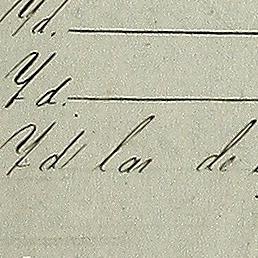 Yd.
Yd.
Yd las de